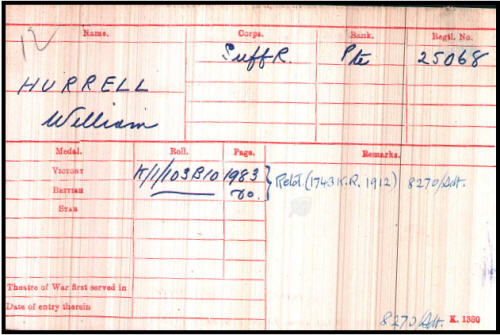 12
Name. Corps. Rank. Regtl. No.
Suff R Pte 25068
HURRELL
William
Medal. Roll. Page. Remarks.
VICTORY K/1/103B10 1983
BRITISH do. } Retd. (1743 K.R. 1912) 8270/Adt.
STAR
Theatre of War first served in
Date of entry therein
8270/Adt. K. 1380